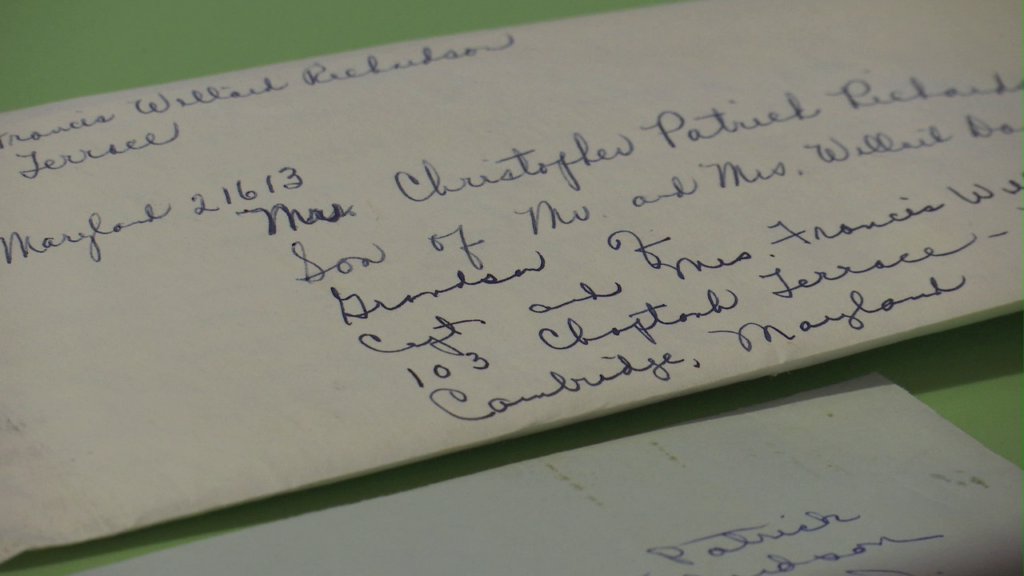 Francis Willied Richardson
Terrace
Maryland 21613
Mr. Christopher Patrick Richards
Son of Mr. and Mrs. Willied Da
Grandson of
Capt and Mrs. Francis W
103 Choptank Terrace -
Cambridge, Maryland
Patrick
dson